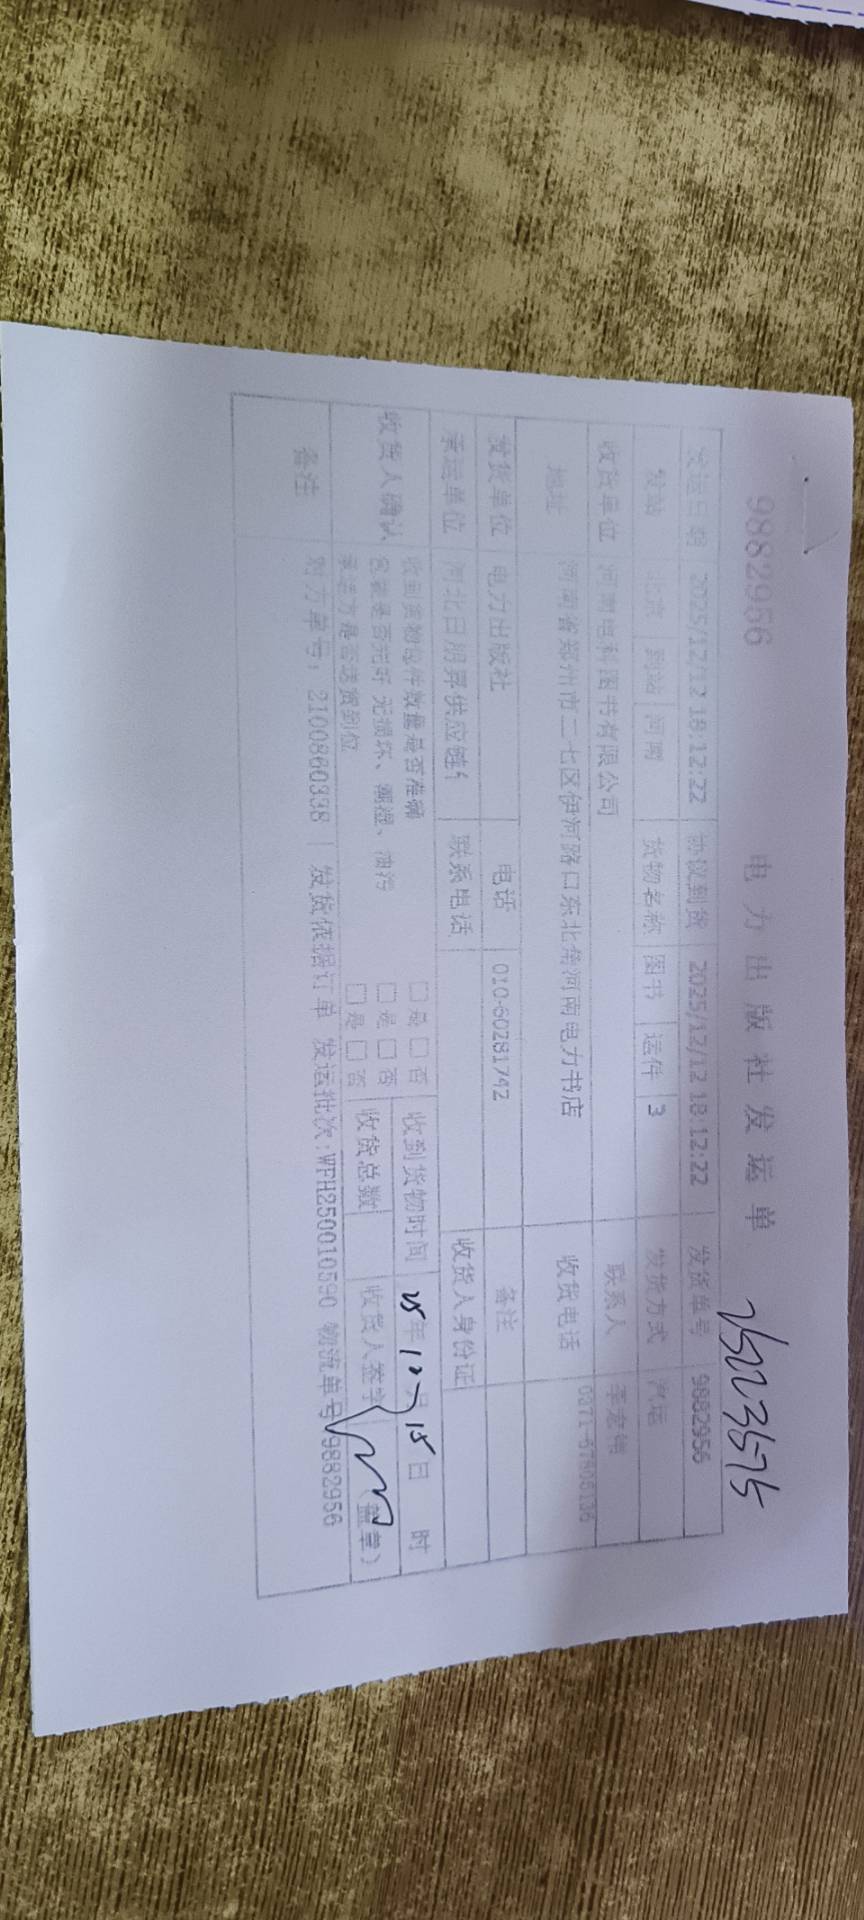 9882956 电力出版社发运单
发运日期 2025/12/12 18:12:22 协议到货 2025/12/12 18:12:22 发货单号 9882956
发站 北京 到站 河南 货物名称 图书 运件 3 发货方式 汽运
收货单位 河南电科图书有限公司 联系人
地址 河南省郑州市二七区伊河路口东北角河南电力书店 收货电话
发货单位 电力出版社 电话 010-60281742 备注
承运单位 河北日朋昇供应链 联系电话 收货人身份证
收货人确认 收到货物总件数量是否准确 □是 □否 收到货物时间 25年12月15日 时
包装是否完好 无损坏、潮湿、油污 □是 □否 收货总数 收货人签字 (盖章)
承运方是否送货到位 □是 □否
备注 对方单号:2100860338 | 发货依据订单 发运批次:WFH250010590 物流单号 9882956